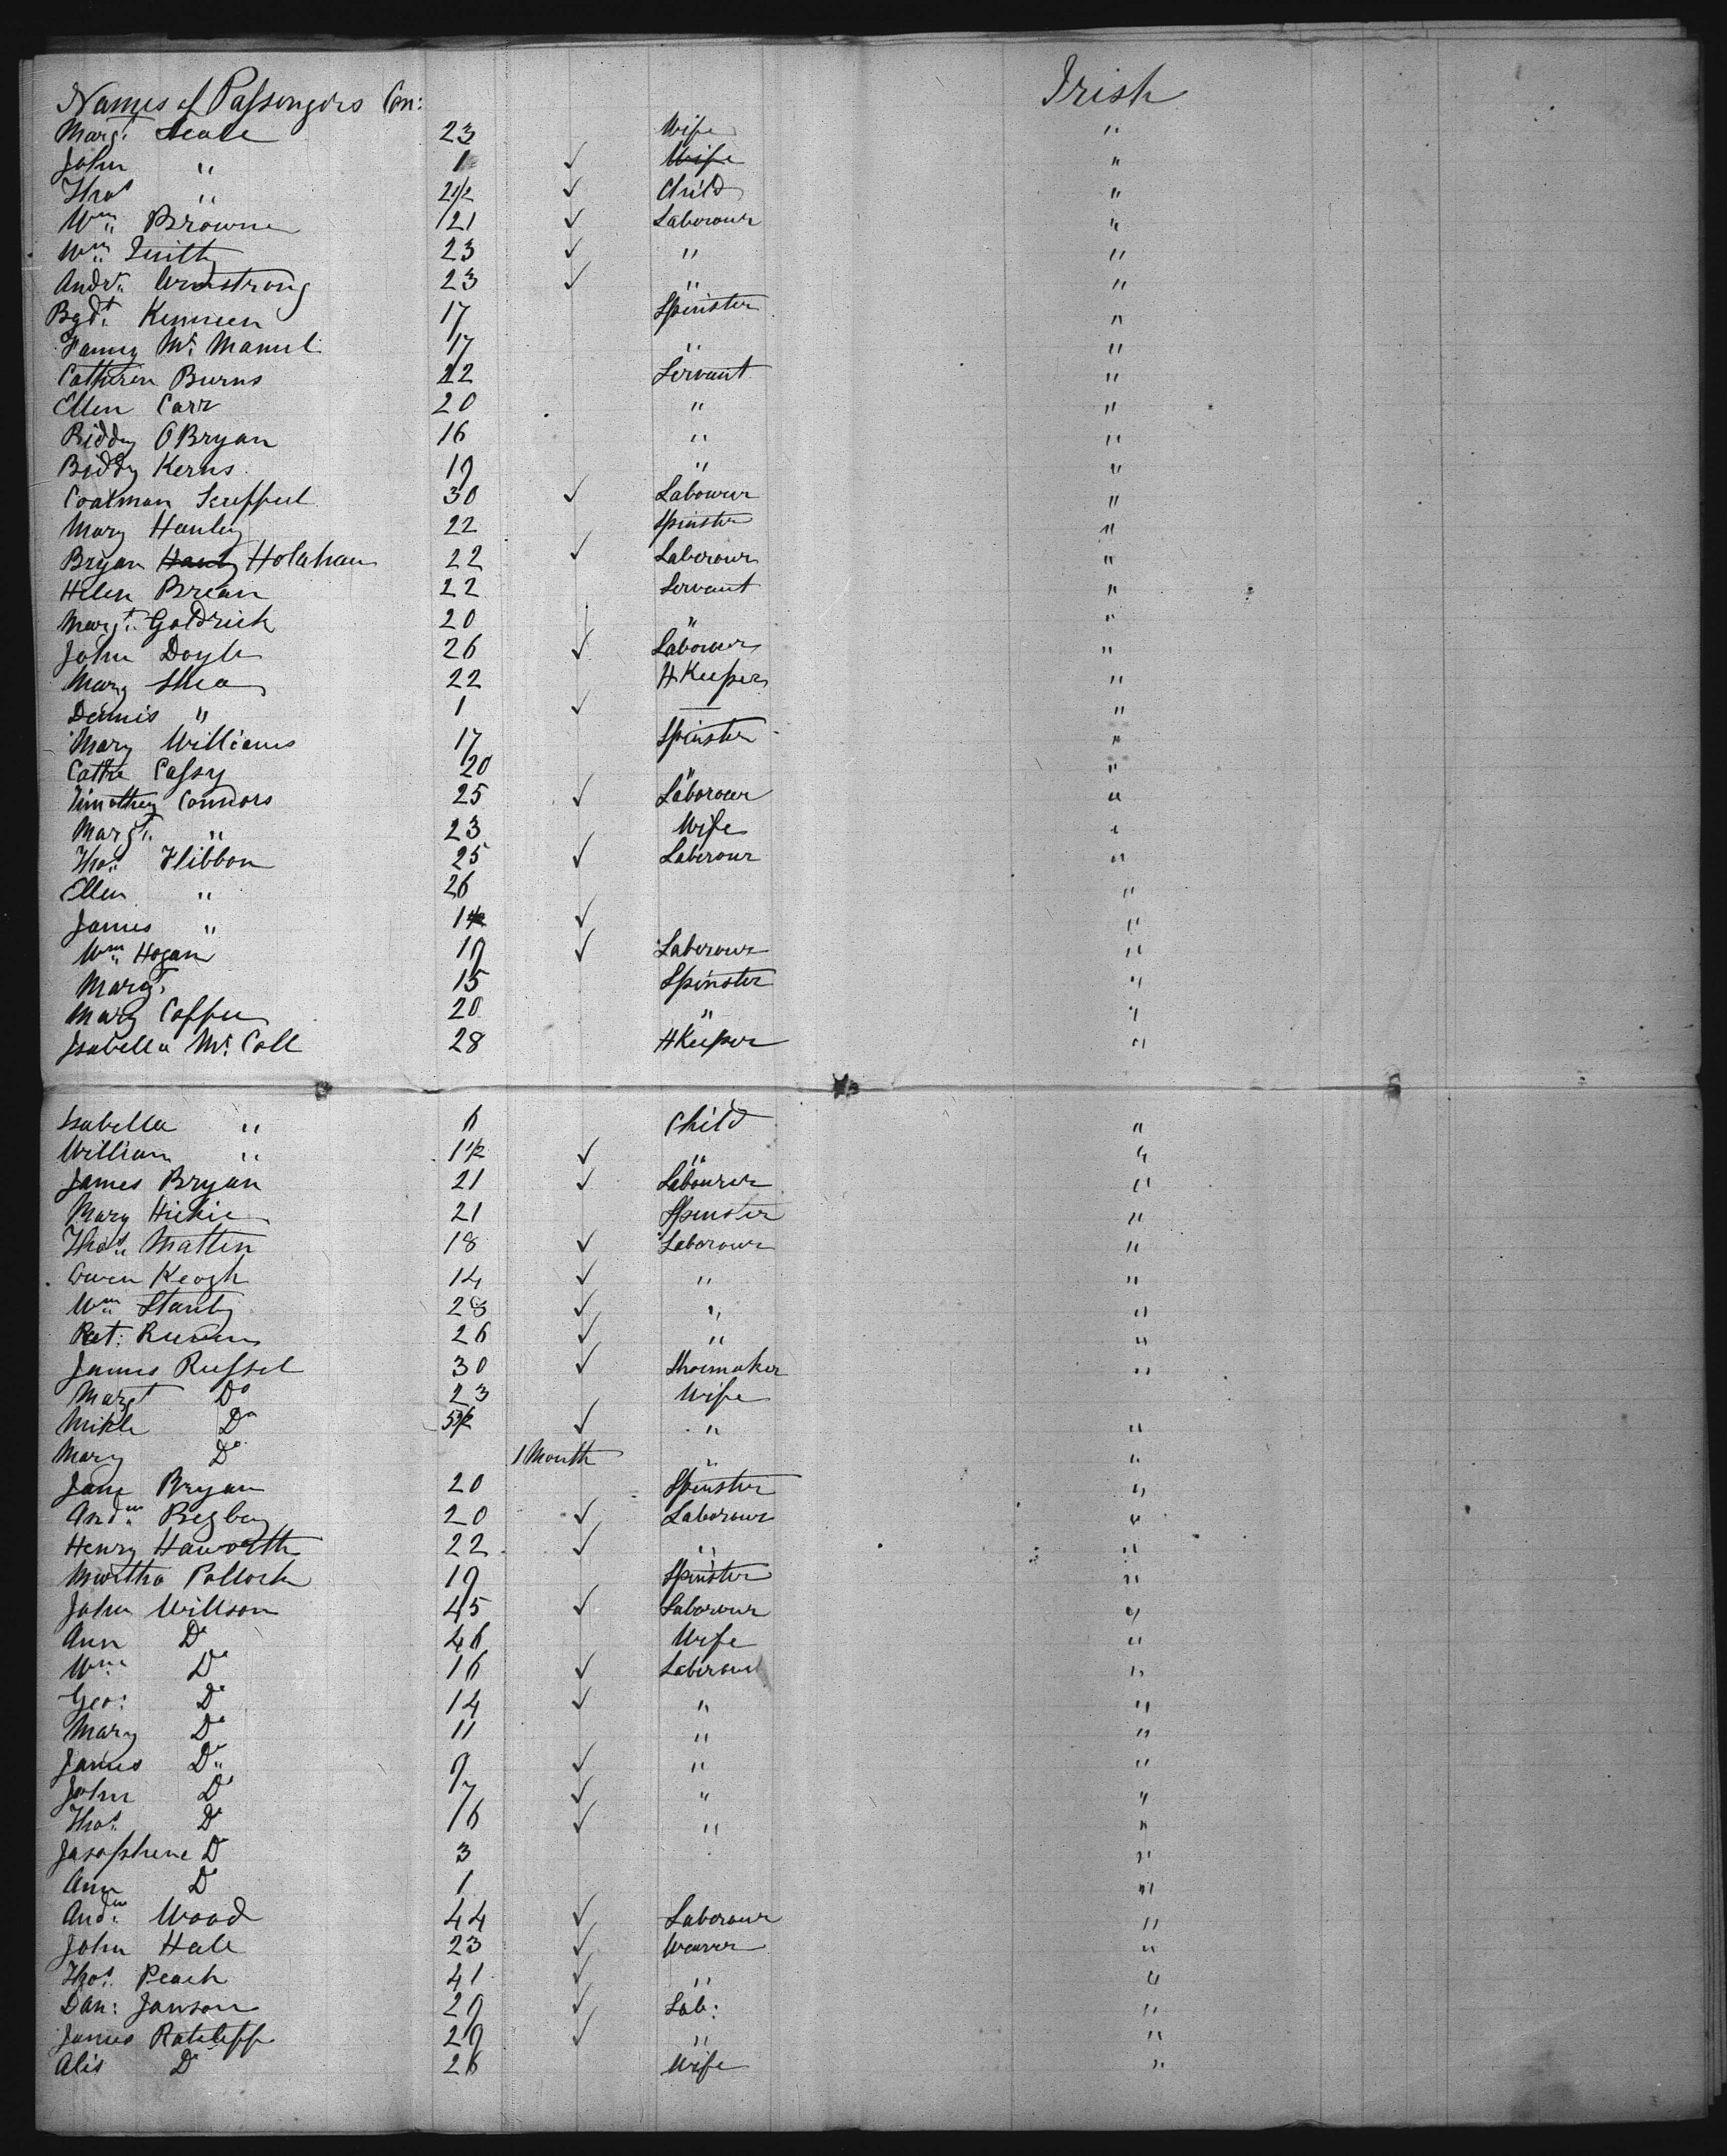 Names of Passengers Con: Irish
Margt. Neale 23 Wife "
John " 1 ✓ Wife "
Thos " 2 1/2 ✓ Child "
Wm. Browne 21 ✓ Laborour "
Wm. Smith 23 ✓ " "
Andw. Armstrong 23 ✓ " "
Bgdt. Kenneen 17 Spinster "
Fanny Mc. Manul 17 " "
Cathren Burns 22 Servant "
Ellen Carr 20 " "
Biddy OBryan 16 " "
Biddy Kerns 19 " "
Coalman 30 ✓ Labourur "
Mary Hanley 22 Spinster "
Bryan Hanly Holahan 22 ✓ Laborour "
Helen Brean 22 Servant "
Margt. Goldrick 20 " "
John Doyle 26 ✓ Labourer "
Mary Shea 22 H Keeper "
Dennis " 1 ✓ — "
Mary Williams 17 Spinster "
Cathe Cassy 20 " "
Timothey Connors 25 ✓ Laborour "
Margt. " 23 Wife "
Thos. Hibbon 25 ✓ Laborour "
Ellen " 26 "
James " 1 1/2 ✓ "
Wm. Hogan 19 ✓ Laborour "
Margt. 15 Spinster "
Mary Coffee 20 " "
Isabella Mc. Coll 28 H Keeper "
Isabella " 6 Child "
William " 1 1/2 ✓ " "
James Bryan 21 ✓ Labourer "
Mary Hickie 21 Spinster "
Thos. Matten 18 ✓ Laborour "
Owen Keogh 14 ✓ " "
Wm. Stanly 28 ✓ " "
Pat: 26 ✓ " "
James Russel 30 ✓ Shoemaker "
Margt Do 23 Wife
Mikle Do 5 1/2 ✓ " "
Mary Do 1 Month " "
Jane Bryan 20 Spinster "
Andw. Regbey 20 ✓ Laborour "
Henry Haworth 22 ✓ " "
Martha Pollock 19 Spinster "
John Willson 45 ✓ Laborour "
Ann Do 46 Wife "
Wm. Do 16 ✓ Laborour "
Geo: Do 14 ✓ " "
Mary Do 11 " "
James Do 9 ✓ " "
John Do 7 ✓ " "
Thos. Do 6 ✓ " "
Jasophine Do 3 "
Ann Do 1 "
Andw. Wood 44 ✓ Laborour "
John Hale 23 ✓ Weaver "
Thos. Peach 41 ✓ " "
Dan: Janson 29 ✓ Lab: "
James Ratcliffe 29 ✓ " "
Alis Do 26 Wife "